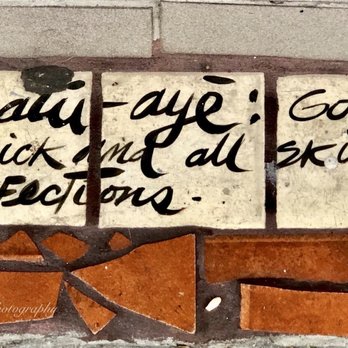 alú-ayé: Go
ick and all ski
fections.
photography